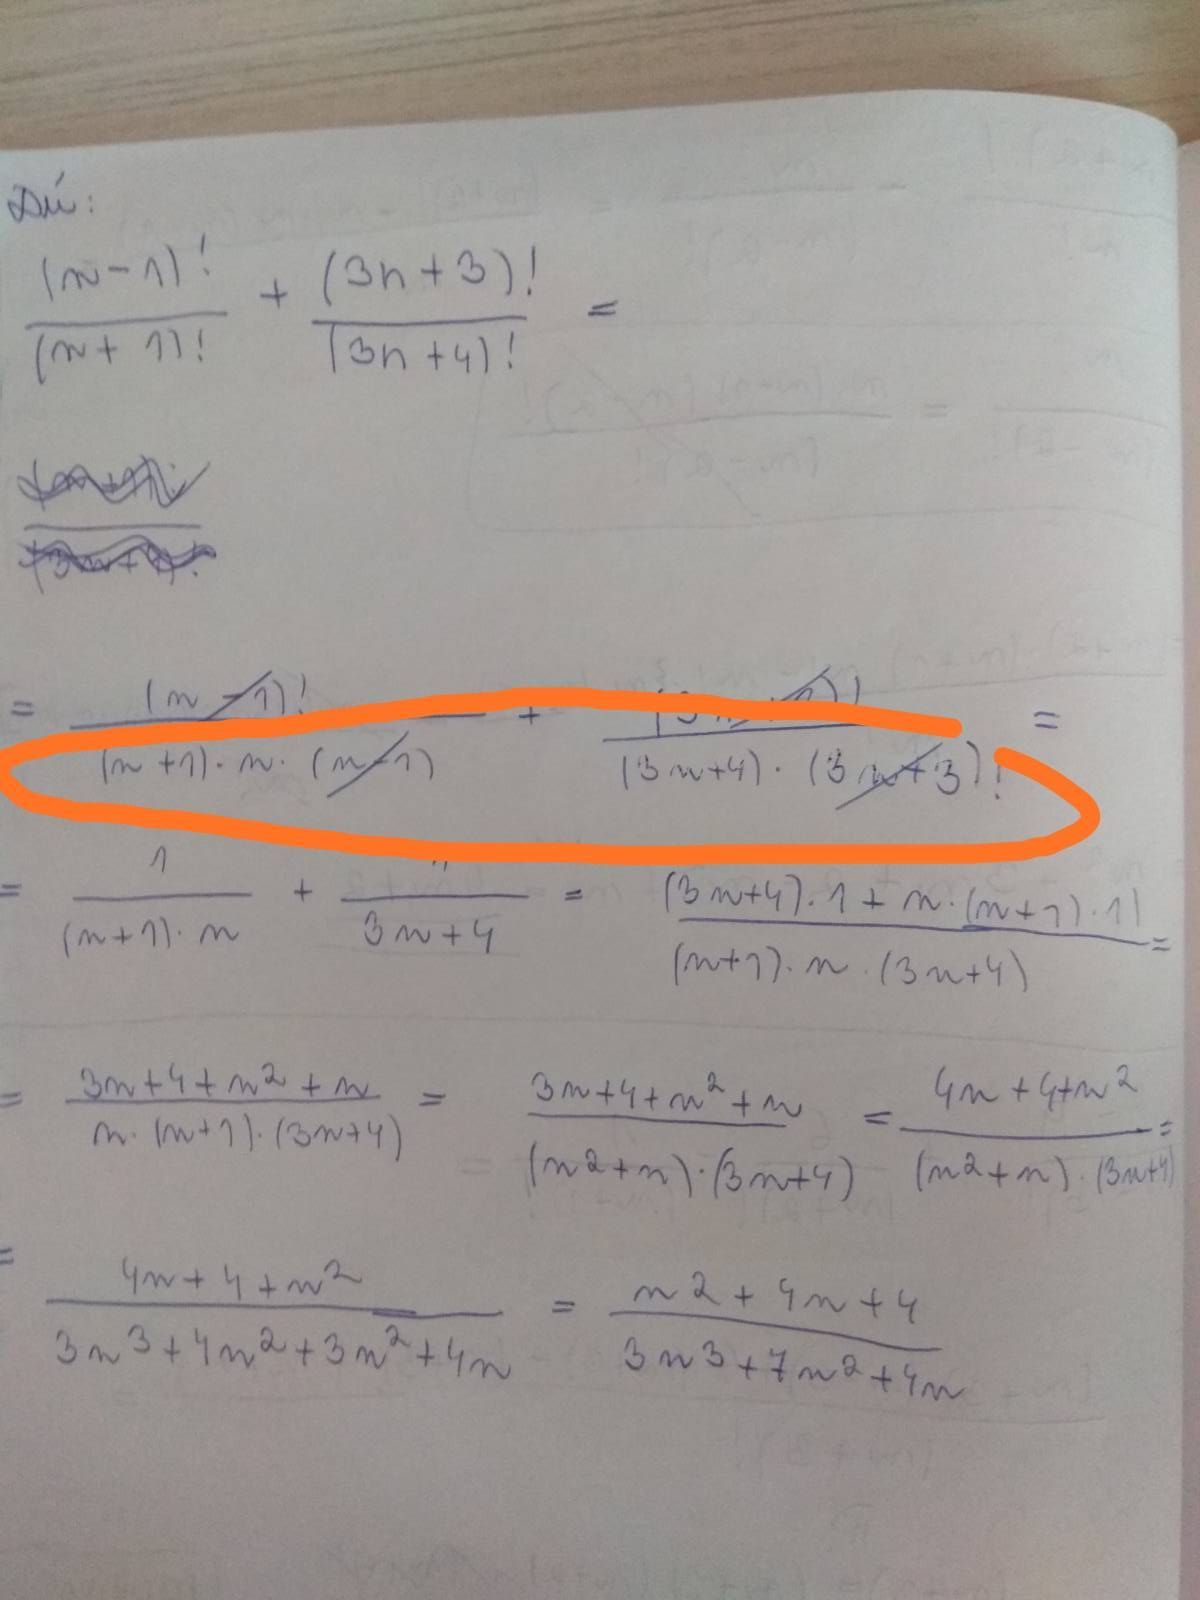 DÚ:
(n-1)!/(n+1)! + (3n+3)!/(3n+4)! =
= (n-1)!/((n+1)·n·(n-1)) + (3n+3)!/((3n+4)·(3n+3)!) =
= 1/((n+1)·n) + 1/(3n+4) = ((3n+4)·1+n·(n+1)·1)/((n+1)·n·(3n+4)) =
= (3n+4+n²+n)/(n·(n+1)·(3n+4)) = (3n+4+n²+n)/((n²+n)·(3n+4)) = (4n+4+n²)/((n²+n)·(3n+4)) =
= (4n+4+n²)/(3n³+4n²+3n²+4n) = (n²+4n+4)/(3n³+7n²+4n)